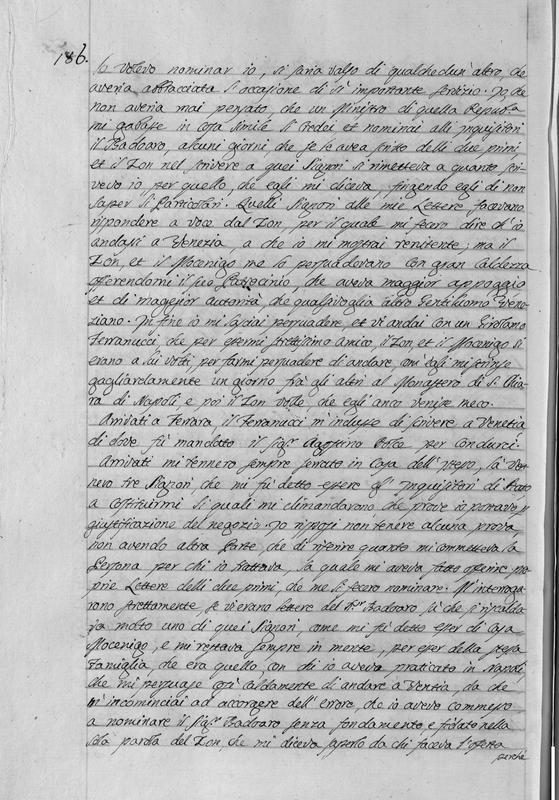 186.
lo volevo nominar io, si saria valso di qualched'un'altro, che
averia abbracciata l'occasione di sì importante servizio. Io, che
non averia mai pensato, che un Ministro di quella Repub.ca
mi gabbasse in cosa simile li credei et nominai alli Inquisitori
il Badoaro, alcuni giorni che se l'avea finito delli due primi,
et il Zon nel scrivere a quei Signori si rimetteva a quanto scri-
vevo io per quello, che egli mi diceva, fingendo egli di non
saper li Particolari. Quelli Signori alle mie Lettere facevano
rispondere a voce dal Zon, per il quale mi fecero dire ch'io
andassi a Venezia, a che io mi mostrai renitente; ma il
Zon, et il Mocenigo me lo persuadevano con gran caldezza
offerendomi il suo Patrocinio, che aveva maggior appoggio
et di maggior autorità, che qualsivoglia altro Gentilhuomo Vene-
ziano. In fine io mi lasciai persuadere, et vi andai con un Girolamo
Ferranucci, che per essermi strettissimo amico, il Zon, et il Mocenigo si
erano a lui volti, per farmi persuadere di andare, com'egli mi strinse
gagliardamente un giorno frà gli altri al Monastero di S. Chia-
ra di Napoli e poi il Zon volle, che egli anco venisse meco.
Arrivati a Ferrara, il Ferranucci m'indusse di scrivere a Venetia
di dove fù mandato il sig.r Agostino per condurci.
Arrivati mi tennero sempre serrato in Casa dell'istesso, là
nero tre Signori, che mi fù detto essere gl'Inquisitori di Stato
a costituirmi li quali mi dimandarono che prove io portavo p
giustificazione del negozio. Io risposi non tenere alcuna prova,
non avendo altra Parte, che di riferire quanto mi commetteva la
Persona per chi io trattava, la quale mi aveva fatto offerire
prie Lettere delli due primi, che me li fecero nominare. M'interroga-
rono strettamente, se vi erano lettere del Badoaro, sì che si riscalda-
va molto uno di quei Signori, come mi fù detto esser di Casa
Mocenigo, e mi restava sempre in mente, per esser della stessa
Famiglia, che era quello, con chi io aveva praticato in Napoli,
che mi persuase così caldamente di andare a Venetia, da che
n'incominciai ad accorgere dell'errore, che io avevo commesso
a nominare il sig.r Badoaro senza fondamento, e fidato nella
sola parola del Zon, che mi diceva saperlo da chi faceva l'offerta
perche